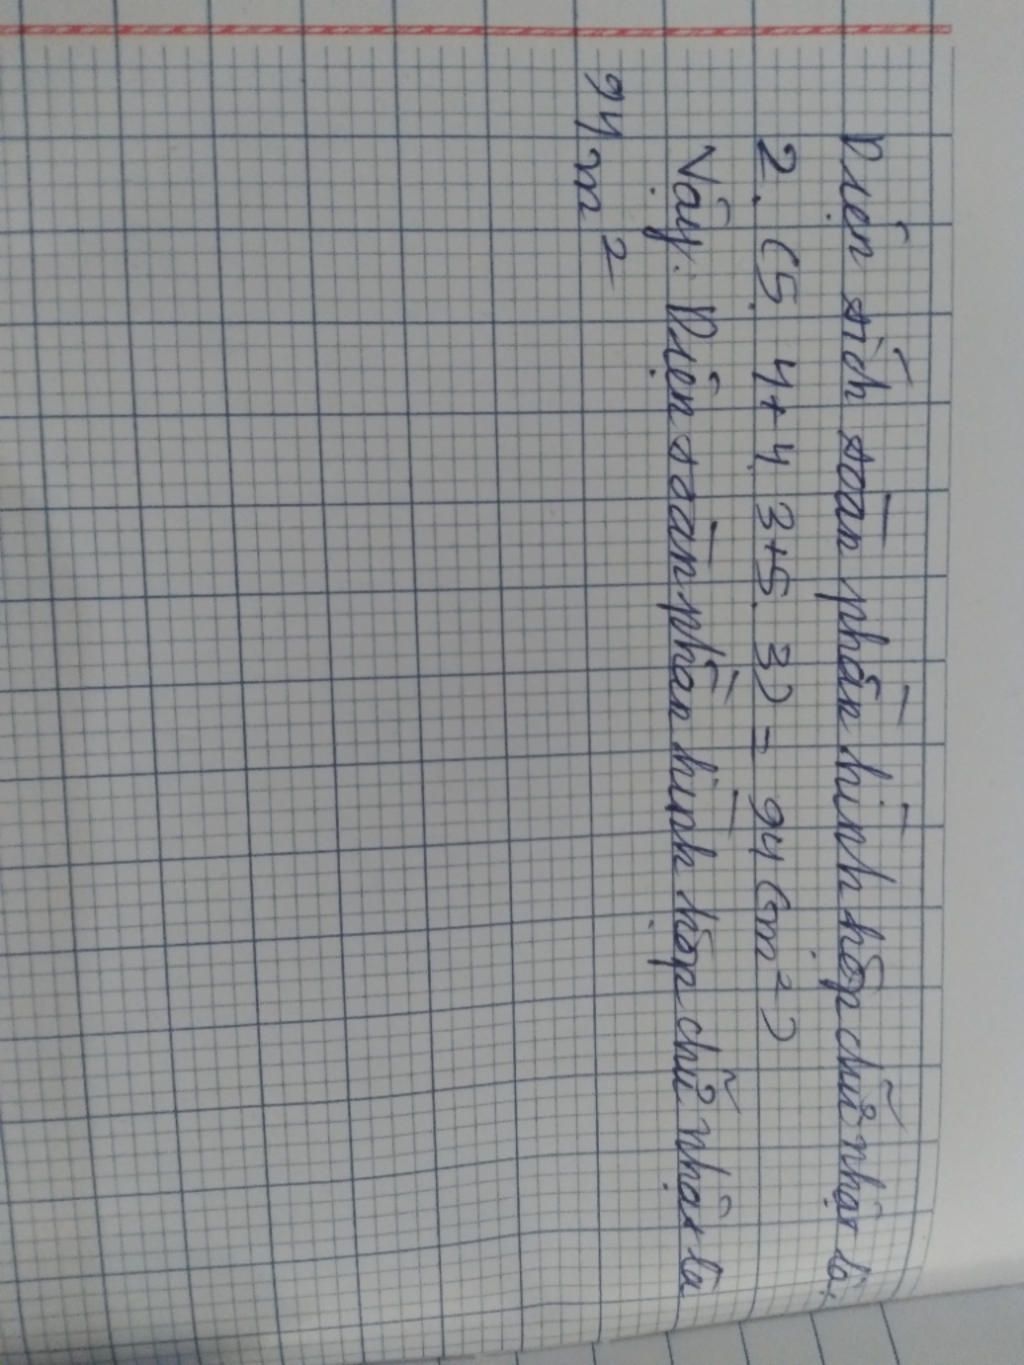 Diện tích toàn phần hình hộp chữ nhật là:
2. (5. 4+4. 3+5. 3) = 94 (m²)
Vậy: Diện toàn phần hình hộp chữ nhật là
94 m²